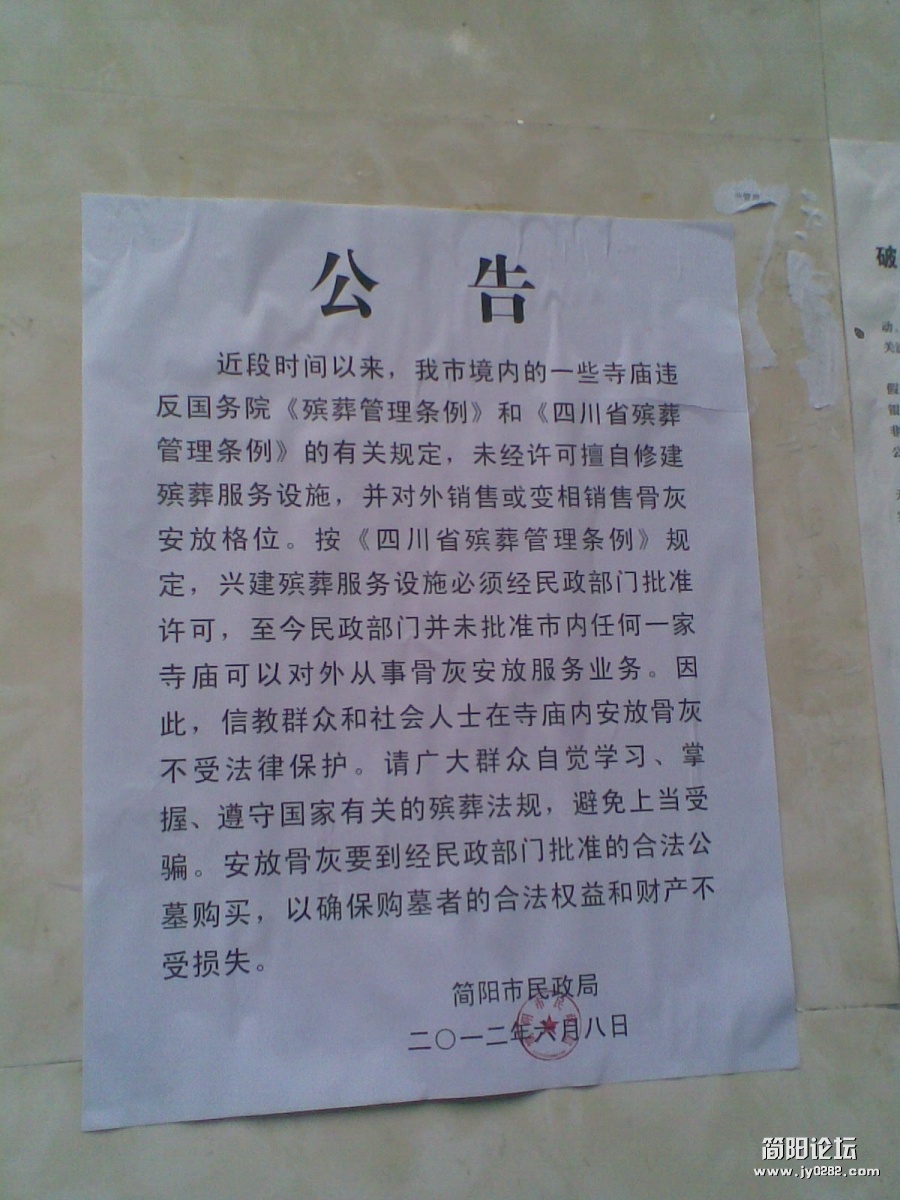 公告
近段时间以来，我市境内的一些寺庙违
反国务院《殡葬管理条例》和《四川省殡葬
管理条例》的有关规定，未经许可擅自修建
殡葬服务设施，并对外销售或变相销售骨灰
安放格位。按《四川省殡葬管理条例》规
定，兴建殡葬服务设施必须经民政部门批准
许可，至今民政部门并未批准市内任何一家
寺庙可以对外从事骨灰安放服务业务。因
此，信教群众和社会人士在寺庙内安放骨灰
不受法律保护。请广大群众自觉学习、掌
握、遵守国家有关的殡葬法规，避免上当受
骗。安放骨灰要到经民政部门批准的合法公
墓购买，以确保购墓者的合法权益和财产不
受损失。
简阳市民政局
二〇一二年六月八日
破
动、
关
假
公
简阳论坛
www.jy0282.com